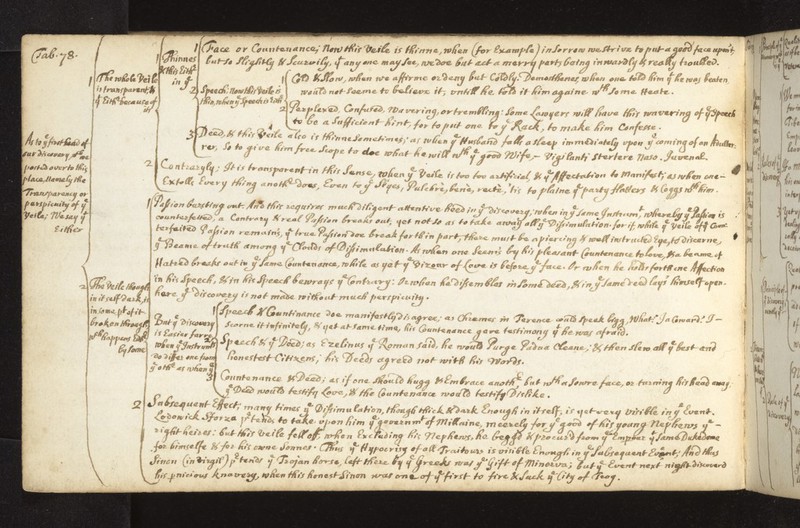 Tab. 78.
As to yͤ first head of
our discovery, wͨʰ we
posted over to this
place, Namely the
Transparency or
perspicuity of yͤ
Veile: We say yͭ
Either
1 The whole Veile
is transparent, &
yͭ Eithʳ because of
its
1 Thinnes
& this Eithʳ
in yͤ
1 Face or Countenance; Now this Veile is thinne, when (for Example) in Sorrow we strive to put a good face upon it,
but so Slightly & Scurvily, yͭ any one may see, we doe but act a merry part, being inwardly & really troubled.
2 Speech; Now this Veile is
thin, when yͤ Speech is Eithʳ
1 Cold & Slow, when we affirme or deny but Coldly. Demosthenes, when one told him yͭ he was beaten,
would not seeme to believe it, untill he told it him againe wͭʰ some Heate.
2 Perplexed, Confused, Wavering, or trembling: Some Lawyers will have this wavering of yͤ Speech
to be a Sufficient hint, for to put one to yͤ Rack, to make him Confesse.
3 Deed, & this Veile also is thinne Sometimes; as when yͤ Husband falls asleep immediately upon yͤ coming of an Adulte-
rer, So to give him free Scope to doe what he will wͭʰ yͤ good Wife, Vigilanti stertere Naso. Juvenal.
2 Contrarily; It is transparent in this Sense, when yͤ Veile is too too artificial, & yͤ Affectation to Manifest; as when one
Extolls Every thing anothʳ does, Even to yͤ Skyes, Pulchrè, benè, rectè, 'tis to plaine yͭ party flatters & Coggs wͭʰ him.
2 The Veile though
in it self dark, is
in some pͭ of it
broken through,
wͨʰ happens Eithʳ
by some
1 Passion bursting out: And this requires much diligent attentive heed in yͤ discovery, when in yͤ same Instrumͭ, whereby yͤ Passion is
counterfeited, a Contrary & real Passion breaks out, yet not so as to take away all yͤ Dissimulation. for if, while yͤ Veile of yͤ Coun-
terfeited Passion remains, yͤ true Passion doe break forth in part, there must be a piercing & well instructed Eye, to discerne
yͤ Beame of truth among yͤ Clouds of Dissimulation. As when one seems by his pleasant Countenance to love, & a beame of
Hatred breaks out in yͤ same Countenance, while as yet yͤ Vizour of Love is before yͤ face. Or when he holds forth one Affection
in his Speech, & in his Speech bewrays yͤ Contrary: Or when he dissembles in some deed, & in yͤ same deed lays himself open.
here yͤ discovery is not made without much perspicuity.
But yͤ discovery
is Easier farre,
when yͤ Instrumͭˢ
do differ one from
yͤ othʳ as when yͤ
1 Speech & Countinance doe manifestly disagree; as Chremes in Terence would speak bigg, What! I a Coward! I
scorne it infinitely, & yet at same time, his Countenance gave testimony yͭ he was afraid.
2 Speech & yͤ Deed; as Ezelinus yͤ Roman said, he would Purge Padua Cleane, & then slew all yͤ best and
honestest Citizens; his Deeds agreed not with his Words.
3 Countenance & Deed; as if one should hugg & Embrace anothʳ but wͭʰ a Sowre face, or turning his head away
yͤ Deed would testify Love, & the Countenance would testify Dislike.
2 Subsequent Effect; many times yͤ Dissimulation, though thick & dark Enough in it self, is yet very visible in yͤ Event.
Lodowick Sforza pʳtends to take upon him yͤ governmͭ of Millaine, meerly for yͤ good of his young Nephews yͤ
right heires: but this Veile fell off, when Excluding his Nephews, he begg'd & procured from yͤ Emperʳ yͤ same Dukedome
for himselfe & for his owne Sonnes. Thus yͤ Hypocrisy of all Traitours is visible Enough in yͤ Subsequent Event; And thus
Sinon (in Virgil) pʳtends yͤ Trojan horse, left there by yͤ Greeks was yͤ Gift of Minerva; but yͤ Event next night discoverd
his pnicious knavery, when this honest Sinon was one of yͤ first to fire & Sack yͤ City of Troy.